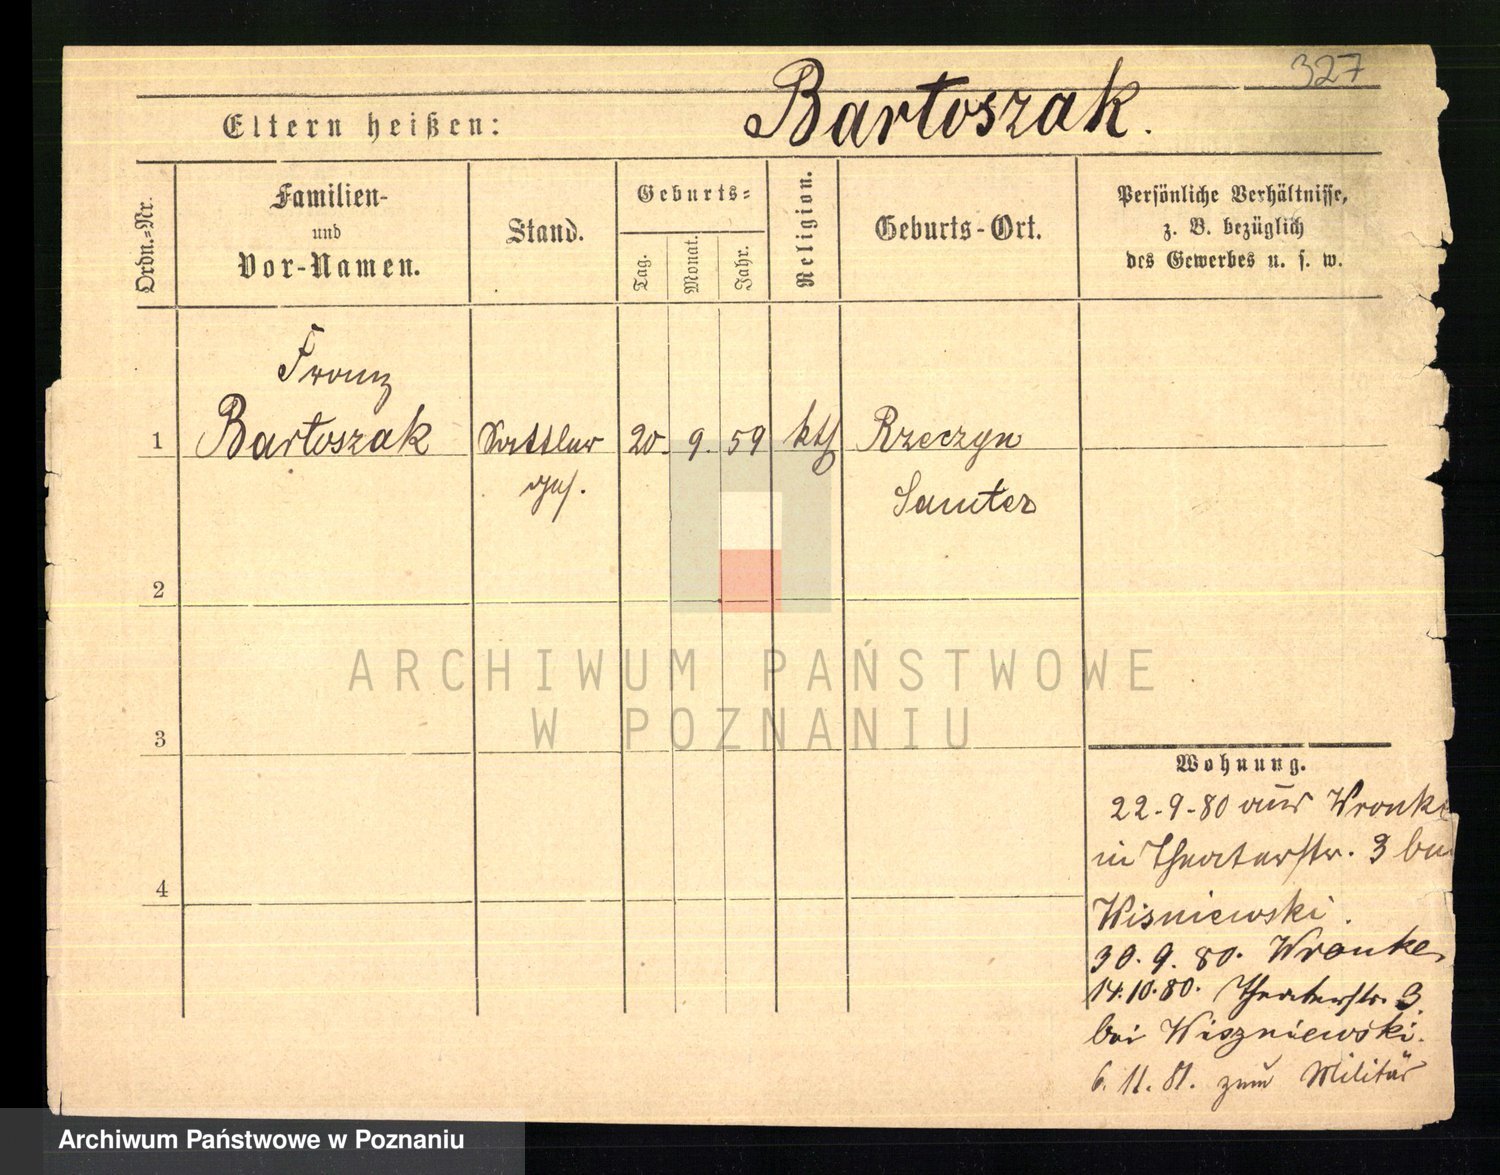 327
Bartoszak.
Eltern heißen:
Ordn.-Nr.
Familien-
und
Vor-Namen.
Stand.
Geburts-
Tag.
Monat.
Jahr.
Religion.
Geburts-Ort.
Persönliche Verhältnisse,
z. B. bezüglich
des Gewerbes u. s. w.
Franz
1 Bartoszak Sattler 20. 9. 59 kth Rzeczyn
ges. Samter
2
3
4
Wohnung.
22-9-80 aus Wronke
in Theaterstr. 3 bei
Wisniewski.
30. 9. 80. Wronke,
14.10.80. Theaterstr. 3
bei Wiszniewski.
6. 11. 81. zum Militär
ARCHIWUM PAŃSTWOWE
W POZNANIU
Archiwum Państwowe w Poznaniu